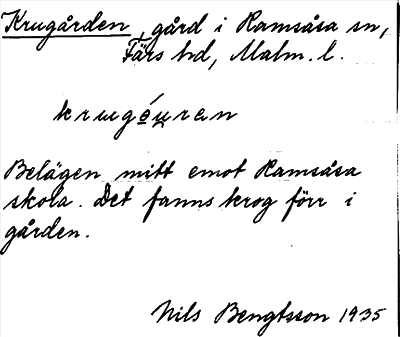 Krugården, gård i Ramsåsa sn,
Färs hd, Malm. l.
krugó̤u̯ran
Belägen mitt emot Ramsåsa
skola. Det fanns krog förr i
gården.
Nils Bengtsson 1935